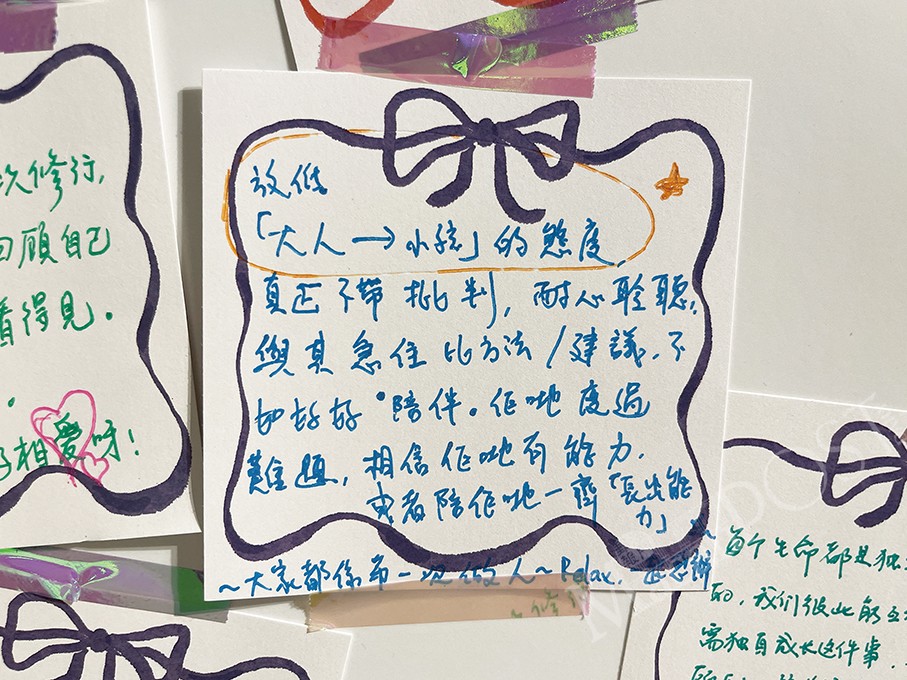 次修行,
回顧自己
看得見.
相愛呀!
放低
「大人→小孩」的態度,
真正不帶批判, 耐心聆聽,
與其急住比方法/建議, 不
如好好“陪伴”佢哋度過
難題, 相信佢哋有能力.
或者陪佢哋一齊「長出能
力」
~大家都係第一次做人~Relax.
每个生命都是独
的, 我们彼此能互
需独自成长这件事.